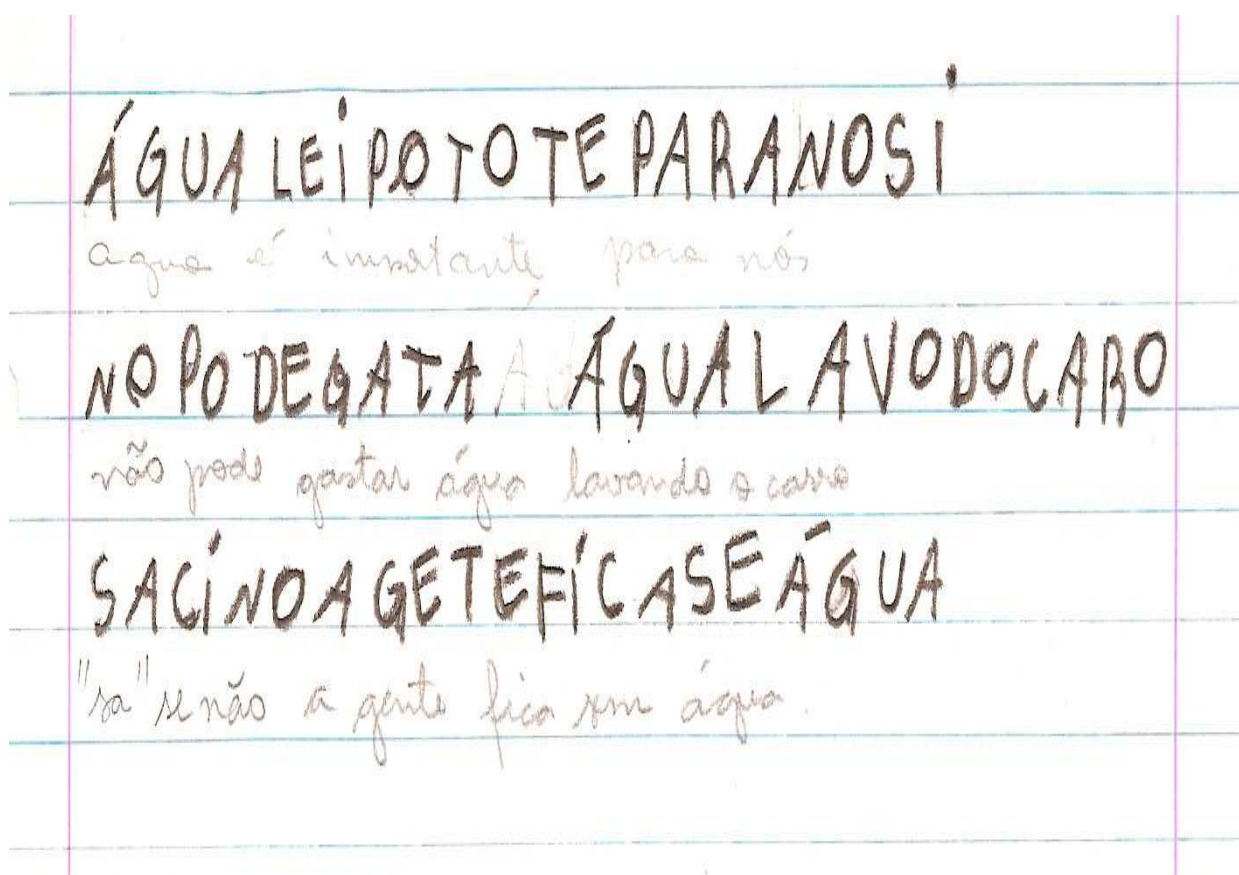 ÁGUA LEI POTOTE PARA NOSI
agua é importante para nós
NO PODE GATA ÁGUA LAVODO CARO
não pode gastar água lavando o carro
SACINOAGETEFICASEÁGUA
"sa" se não a gente fica sem água.